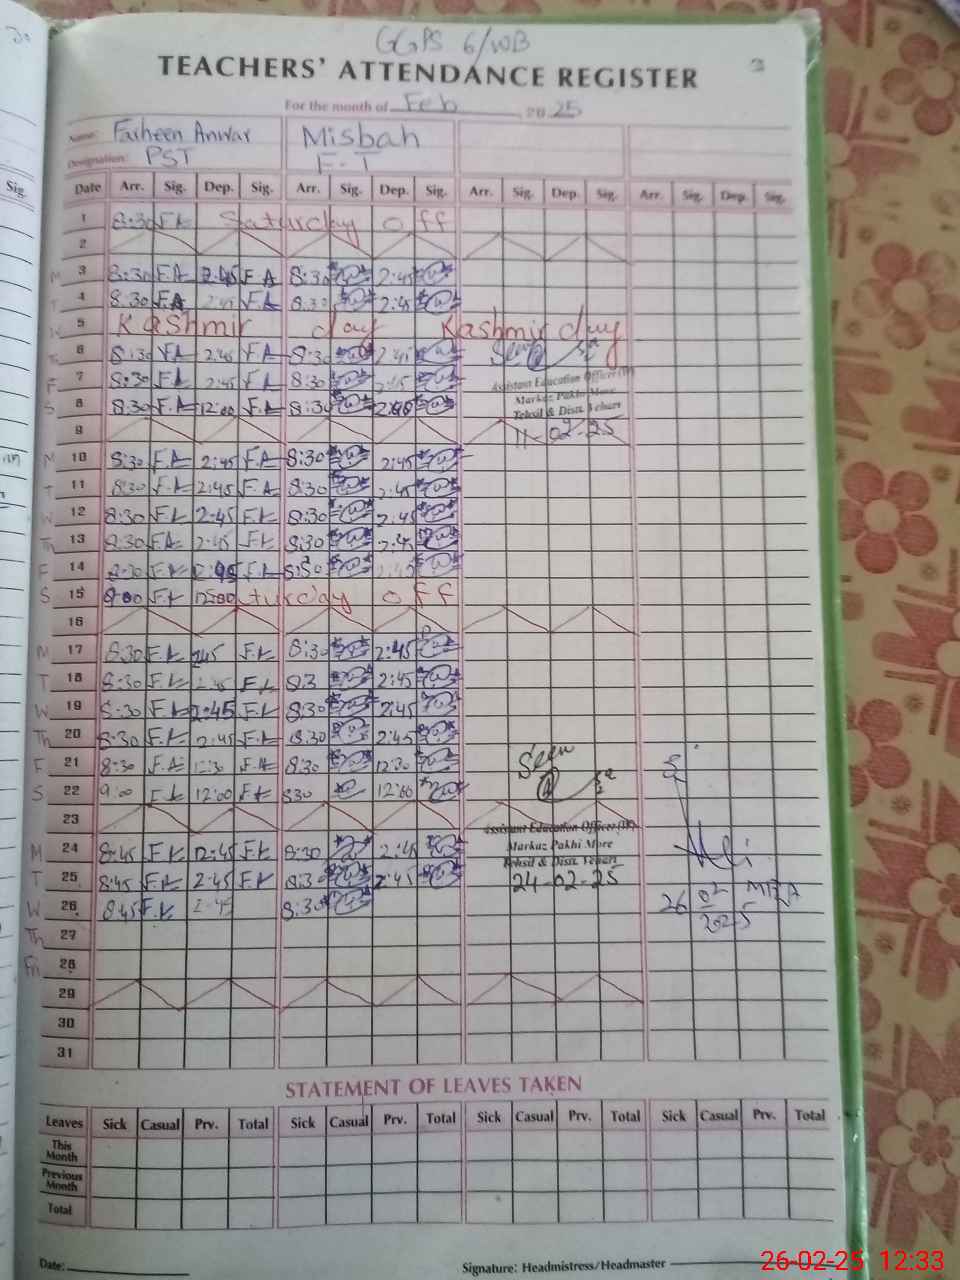 GGPS 6/WB
TEACHERS' ATTENDANCE REGISTER
3
For the month of Feb , 20 25
Name: Farheen Anwar Misbah
Designation: PST F.T
Sig. Date Arr. Sig. Dep. Sig. Arr. Sig. Dep. Sig. Arr. Sig. Dep. Sig. Arr. Sig. Dep. Sig.
1 8:30 F.A Saturday off
2
M 3 8:30 F.A 2:45 F.A 8:30 2:45
T 4 8:30 F.A 2:45 F.A 8:30 2:45
W 5 Kashmir day Kashmir day
T 6 8:30 F.A 2:45 F.A 8:30 2:45 Seen
F 7 8:30 F.A 2:45 F.A 8:30 2:45 Assistant Education Officer (W)
Markaz Pakhi More
S 8 8:30 F.A 12:00 F.A 8:30 Tehsil & Distt. Vehari
9 11-02-25
M 10 8:30 F.A 2:45 F.A 8:30 2:45
T 11 8:30 F.A 2:45 F.A 8:30 2:45
W 12 8:30 F.A 2:45 F.A 8:30 2:45
Th 13 8:30 F.A 2:45 F.A 8:30 2:45
F 14 8:30 F.A 2:45 F.A 8:30 2:45
S 15 F.A turday off
16
M 17 8:30 F.A 245 F.A 8:30 2:45
T 18 8:30 F.A 2:45 F.A 8:3 2:45
W 19 8:30 F.A 2:45 F.A 8:30 2:45
Th 20 8:30 F.A 2:45 F.A 8:30 2:45
F 21 8:30 F.A 12:30 F.A 8:30 12:30 Seen
S 22 9:00 F.A 12:00 F.A 830 12:00
23 Assistant Education Officer (W)
M 24 8:45 F.A 2:45 F.A 8:30 2:45 Markaz Pakhi More
Tehsil & Distt. Vehari
T 25 8:45 F.A 2:45 F.A 8:30 2:45 24-02-25
W 26 8:45 F.A 2:45 8:30 26 02 2025 MEA
Th 27
Fri 28
29
30
31
STATEMENT OF LEAVES TAKEN
Leaves Sick Casual Prv. Total Sick Casual Prv. Total Sick Casual Prv. Total Sick Casual Prv. Total
This Month
Previous Month
Total
Date: Signature: Headmistress/Headmaster
26-02-25 12:33